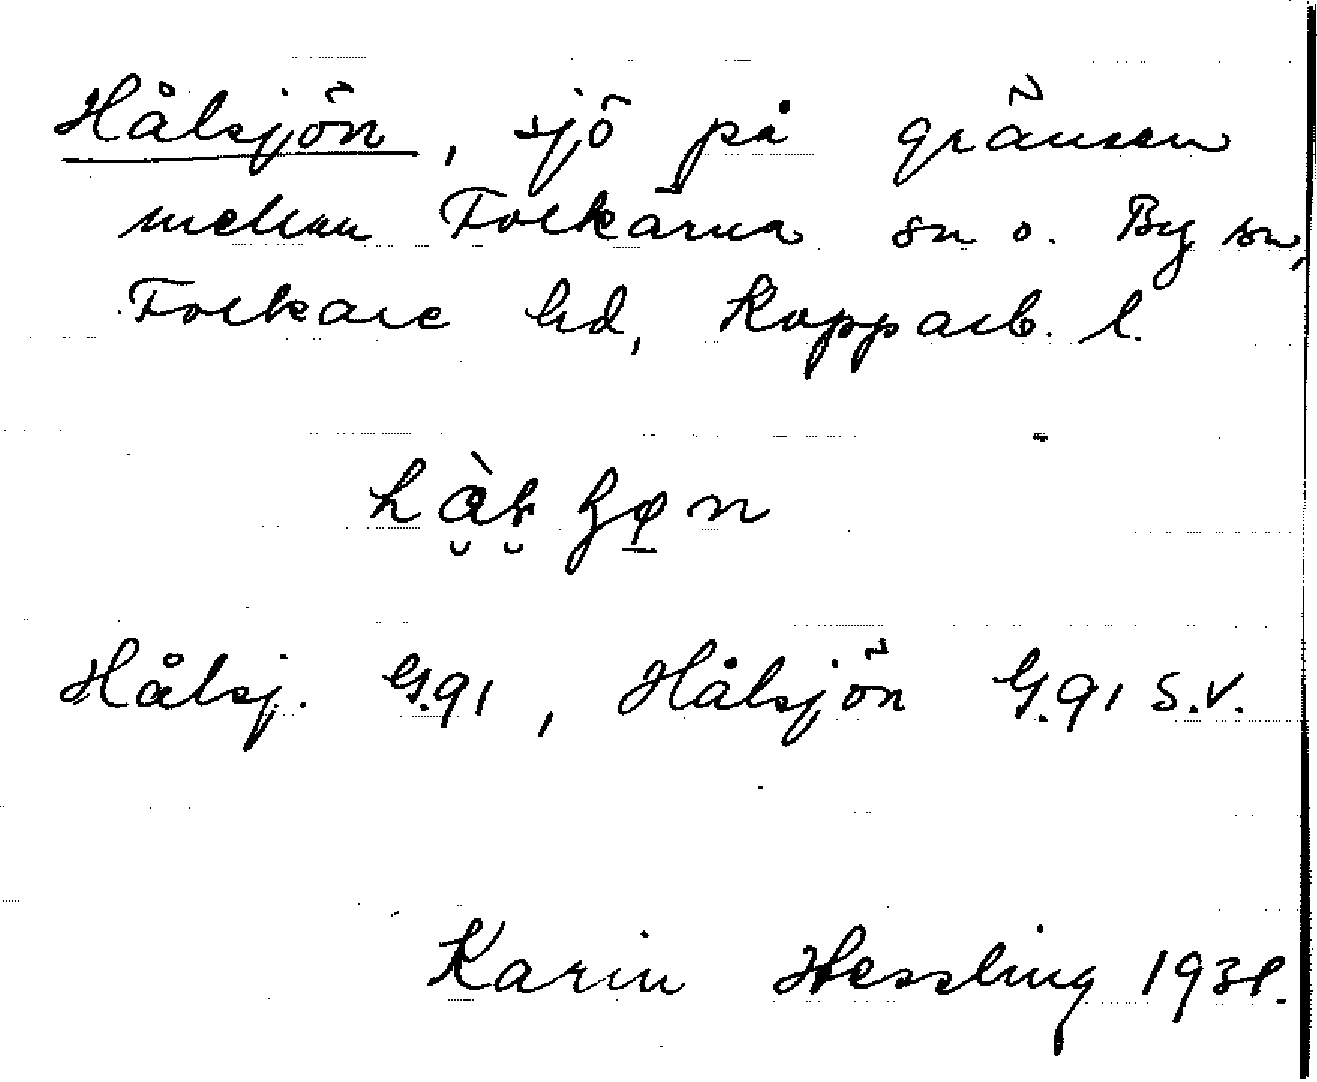 Hålsjön, sjö på gränsen
mellan Folkärna sn o. By sn,
Folkare hd, Kopparb. l.
Hålsj. G.91, Hålsjön G.91 S.V.
Karin Hessling 1938.